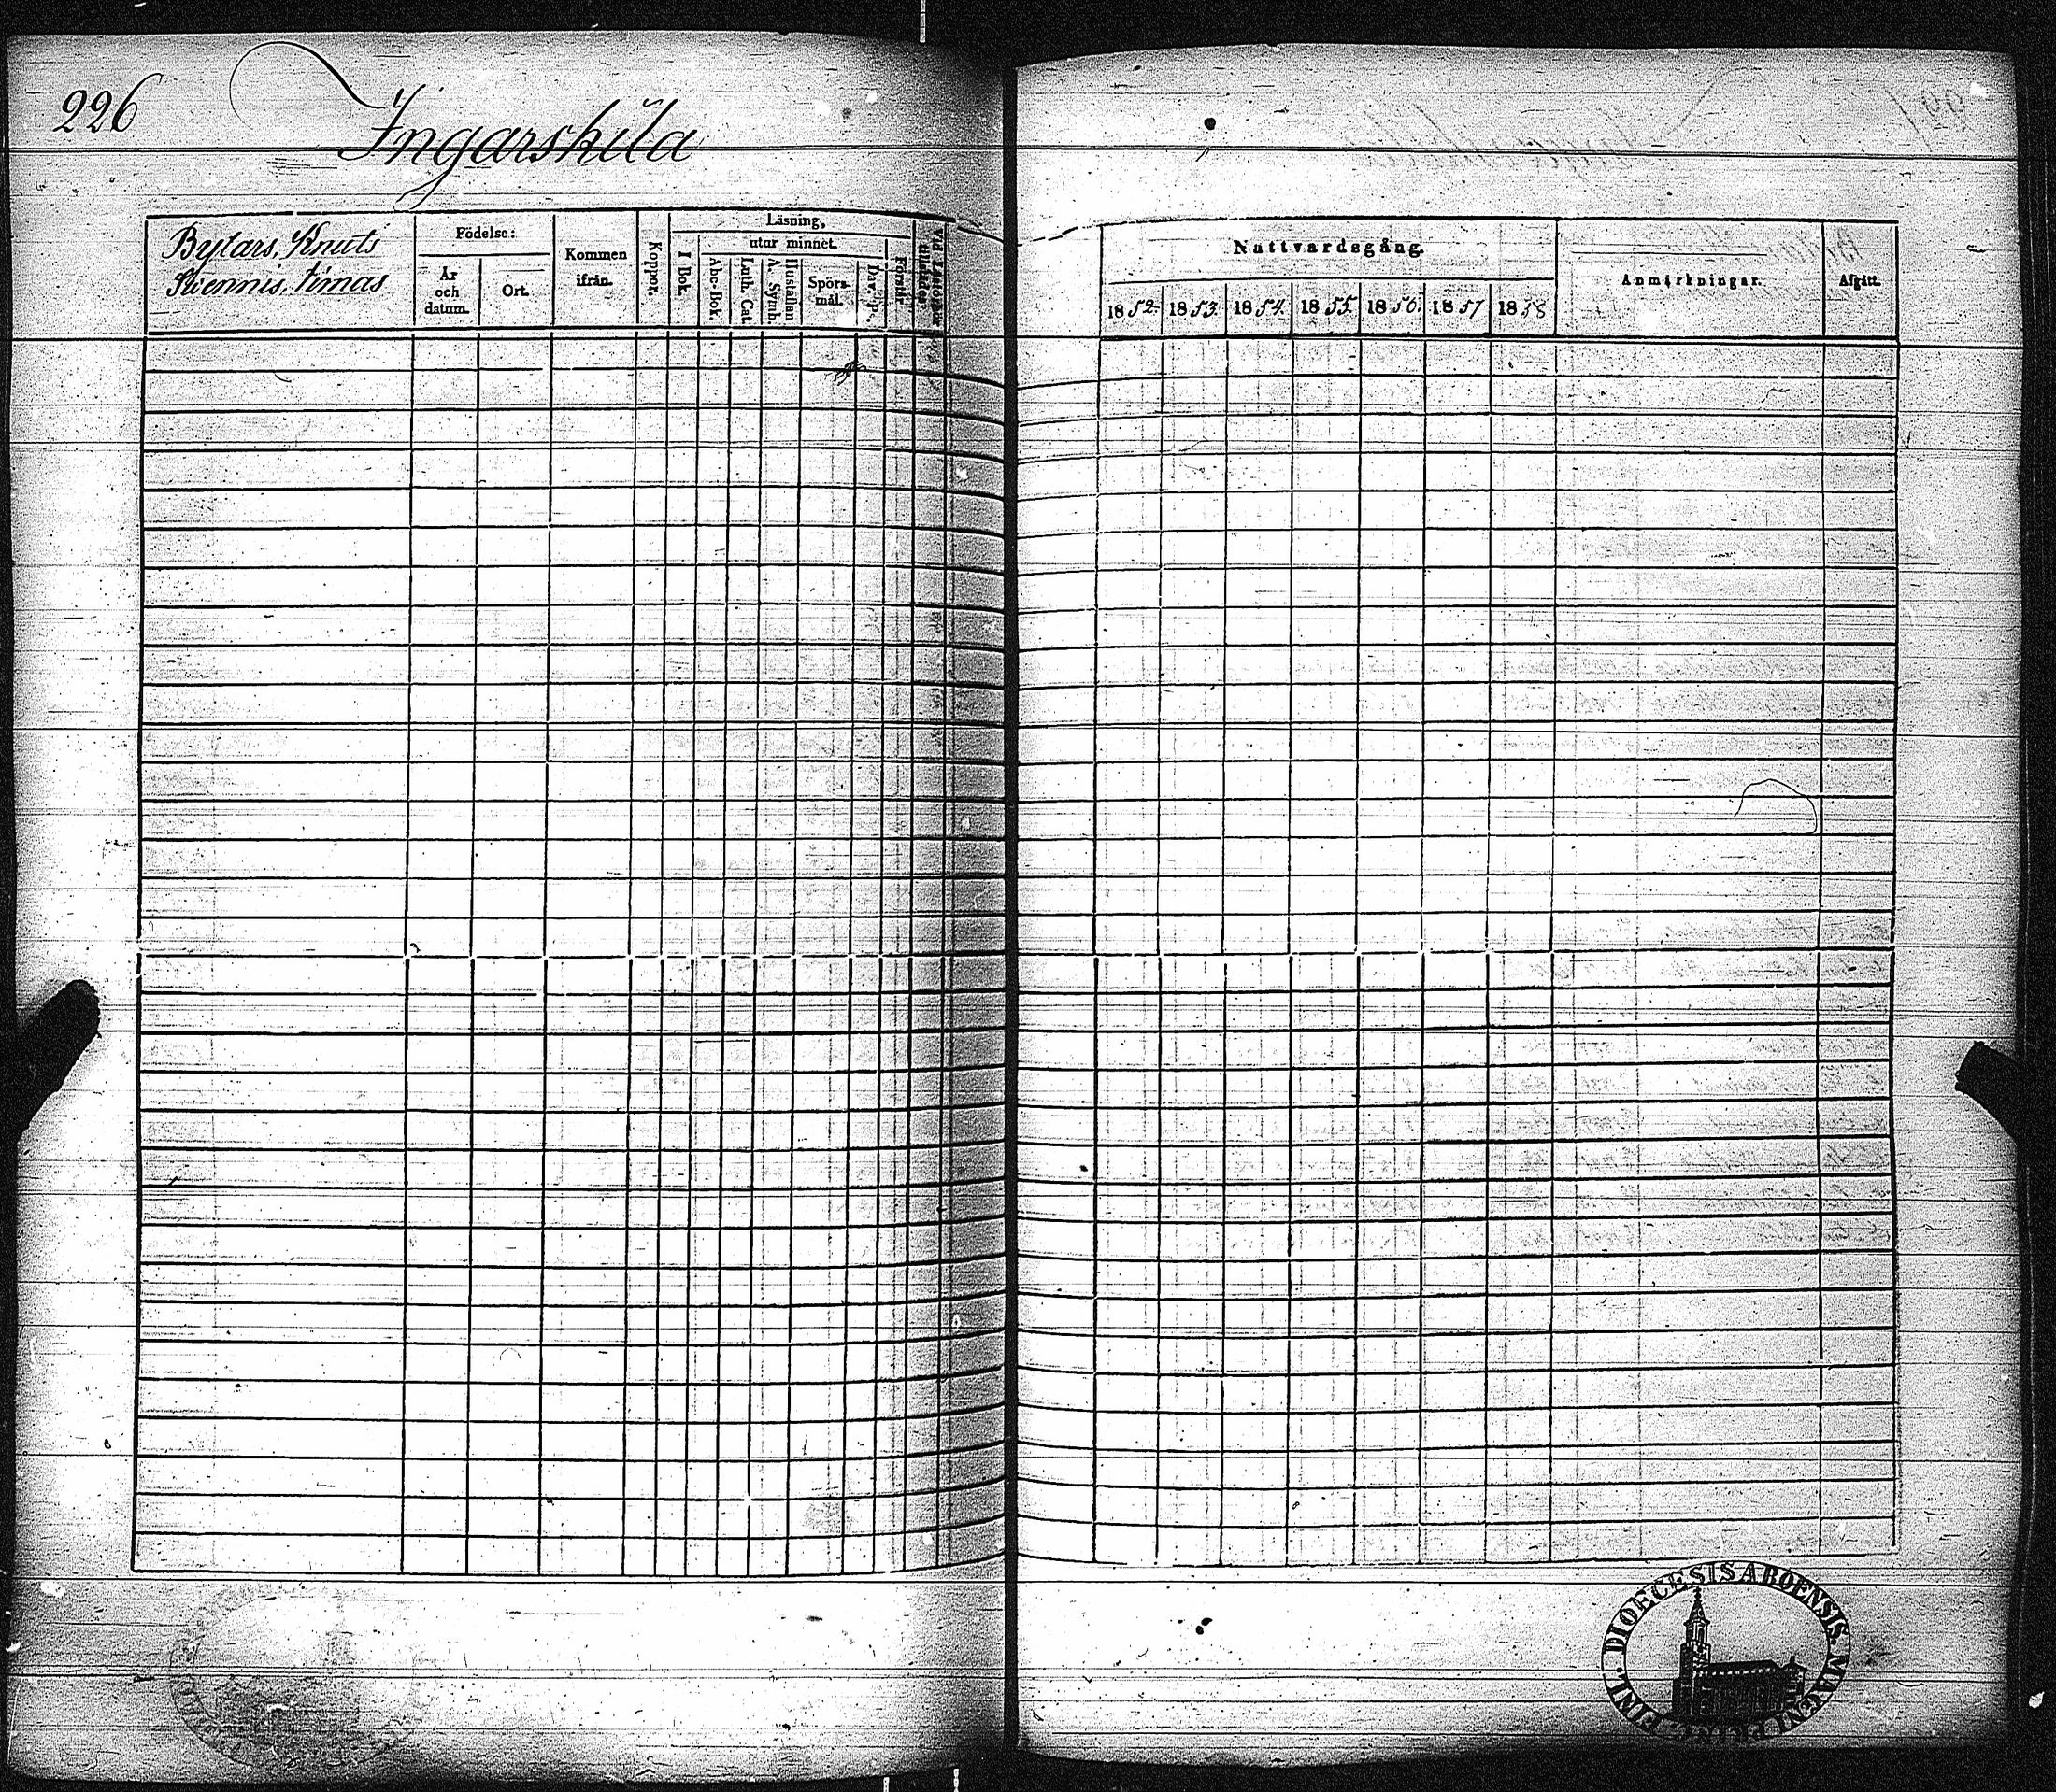 226
Ingarskila
Bytars, Knuts
Svennis, Timas
Födelse:
År
och
datum.
Ort.
Kommen
ifrån.
Koppor.
Läsning,
utur minnet.
I Bok.
Abc-Bok
Luth. Cat.
Hustaflan
A. Symb.
Spörs-
mål.
Dav. P.
Förstår.
Nattvardsgång.
1852.
1853.
1854.
1855.
1856.
1857
1858
Anmärkningar.
Afgått.
FINL. DIOECESIS ABOENSIS. MAGNI PRINC.